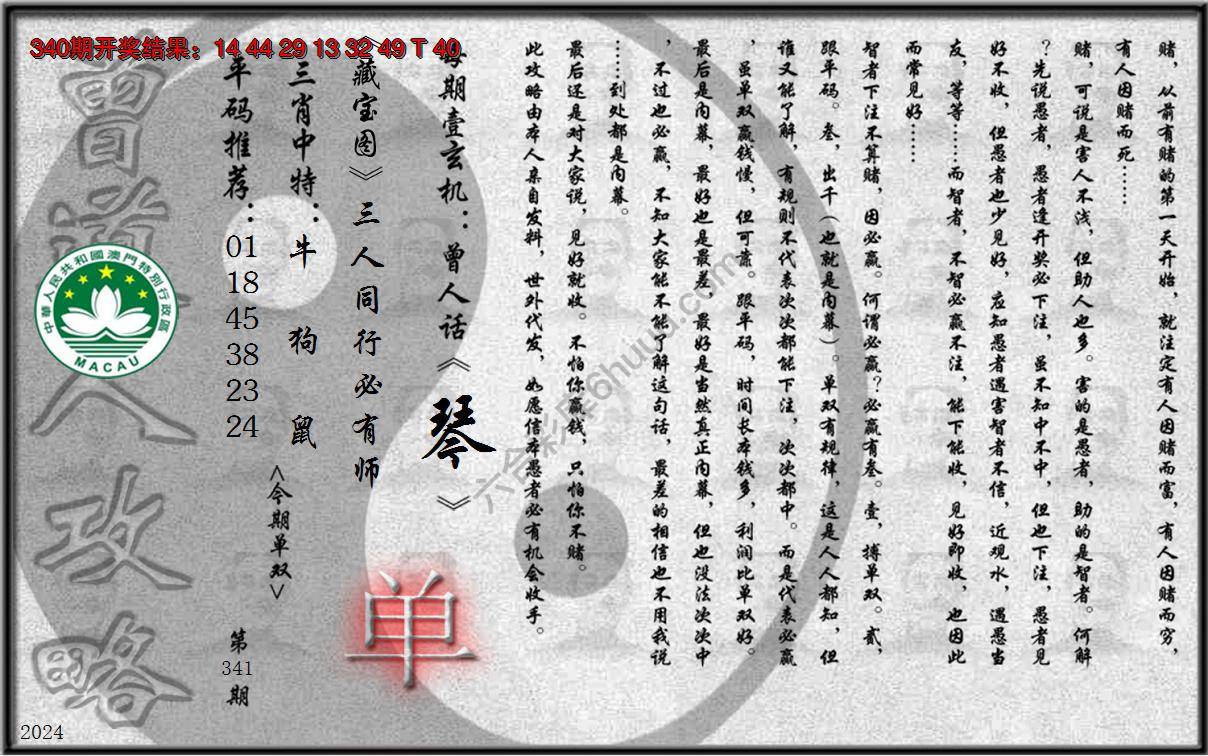 340期开奖结果：14 44 29 13 32 49 T 40
赌，从前有赌的第一天开始，就注定有人因赌而富，有人因赌而穷，
有人因赌而死……
赌，可说是害人不浅，但助人也多。害的是愚者，助的是智者。何解
？先说愚者，愚者逢开奖必下注，虽不知中不中，但也下注，愚者见
好不收，但愚者也少见好，应知愚者遇害智者不信，近观水，遇愚当
友，等等……而智者，不智必赢不注，能下能收，见好即收，也因此
而常见好……
智者下注不算赌，因必赢。何谓必赢？必赢有叁。壹，搏单双。贰，
跟平码。叁，出千（也就是内幕）。单双有规律，这是人人都知，但
谁又能了解，有规则不代表次次都能下注，次次都中。而是代表必赢
，虽单双赢钱慢，但可靠。跟平码，时间长本钱多，利润比单双好。
最后是内幕，最好也是最差，最好是当然真正内幕，但也没法次次中
，不过也必赢，不知大家能不能了解这句话，最差的相信也不用我说
……到处都是内幕。
最后还是对大家说，见好就收。不怕你赢钱，只怕你不赌。
此攻略由本人亲自发料，世外代发，如愿信本愚者必有机会收手。
每期壹玄机：曾人话《琴》
《藏宝图》三人同行必有师
三肖中特：牛 狗 鼠
平码推荐：01 18 45 38 23 24
<今期单双>
单
第341期
曾道人攻略
中華人民共和國澳門特別行政區
MACAU
六合彩库6huuu.com
2024